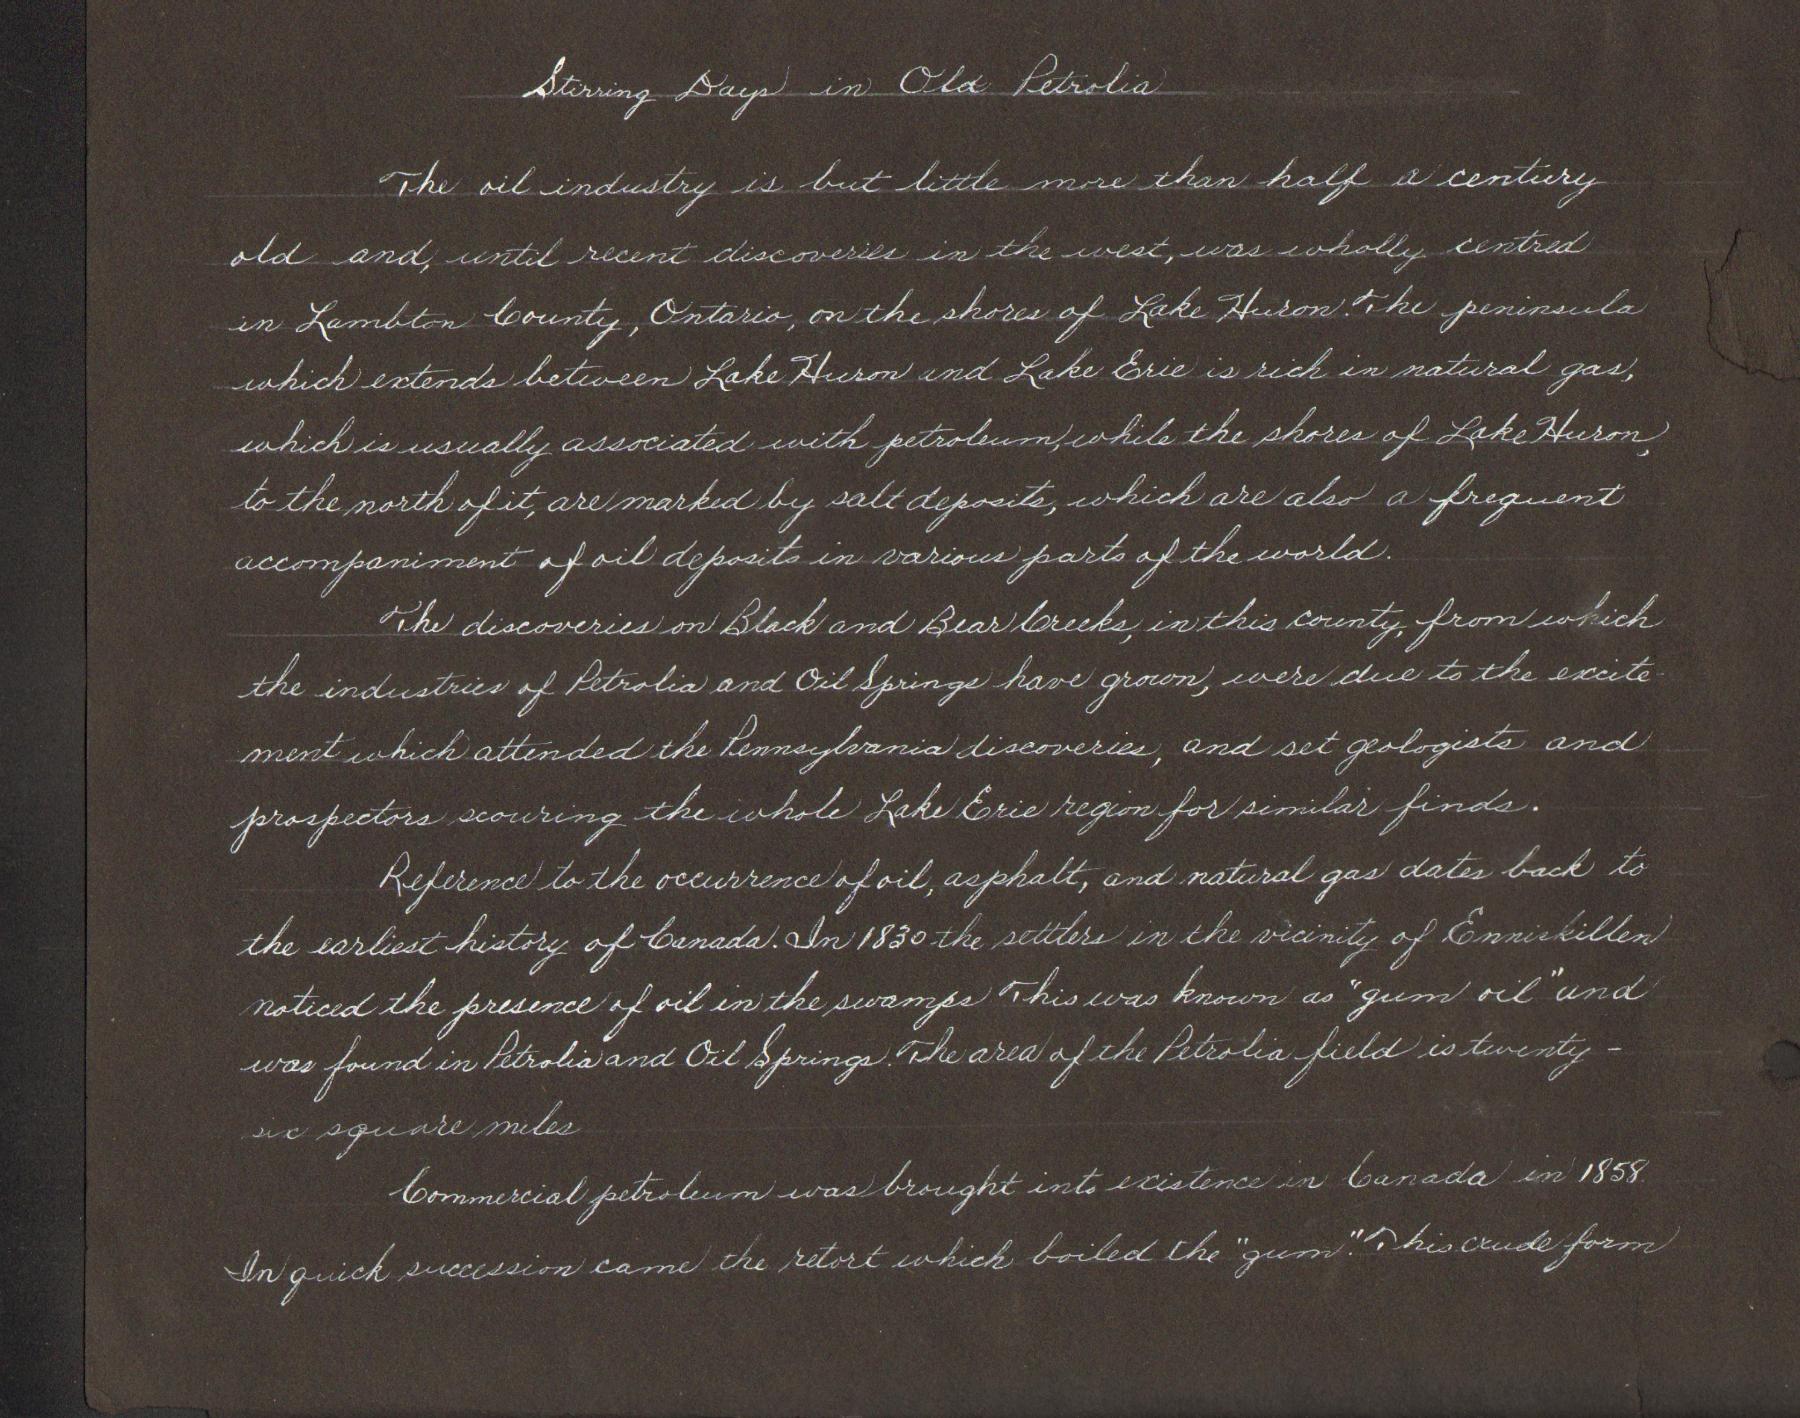 Stirring Days in Old Petrolia
The oil industry is but little more than half a century
old and, until recent discoveries in the west, was wholly centred
in Lambton County, Ontario, on the shores of Lake Huron. The peninsula
which extends between Lake Huron and Lake Erie is rich in natural gas,
which is usually associated with petroleum, while the shores of Lake Huron,
to the north of it, are marked by salt deposits, which are also a frequent
accompaniment of oil deposits in various parts of the world.
The discoveries on Black and Bear Creeks, in this county, from which
the industries of Petrolia and Oil Springs have grown, were due to the excite-
ment which attended the Pennsylvania discoveries, and set geologists and
prospectors scouring the whole Lake Erie region for similar finds.
Reference to the occurrence of oil, asphalt, and natural gas dates back to
the earliest history of Canada. In 1830 the settlers in the vicinity of Enniskillen
noticed the presence of oil in the swamps This was known as "gum oil" and
was found in Petrolia and Oil Springs. The area of the Petrolia field is twenty-
six square miles
Commercial petroleum was brought into existence in Canada in 1858.
In quick succession came the retort which boiled the "gum". This crude form